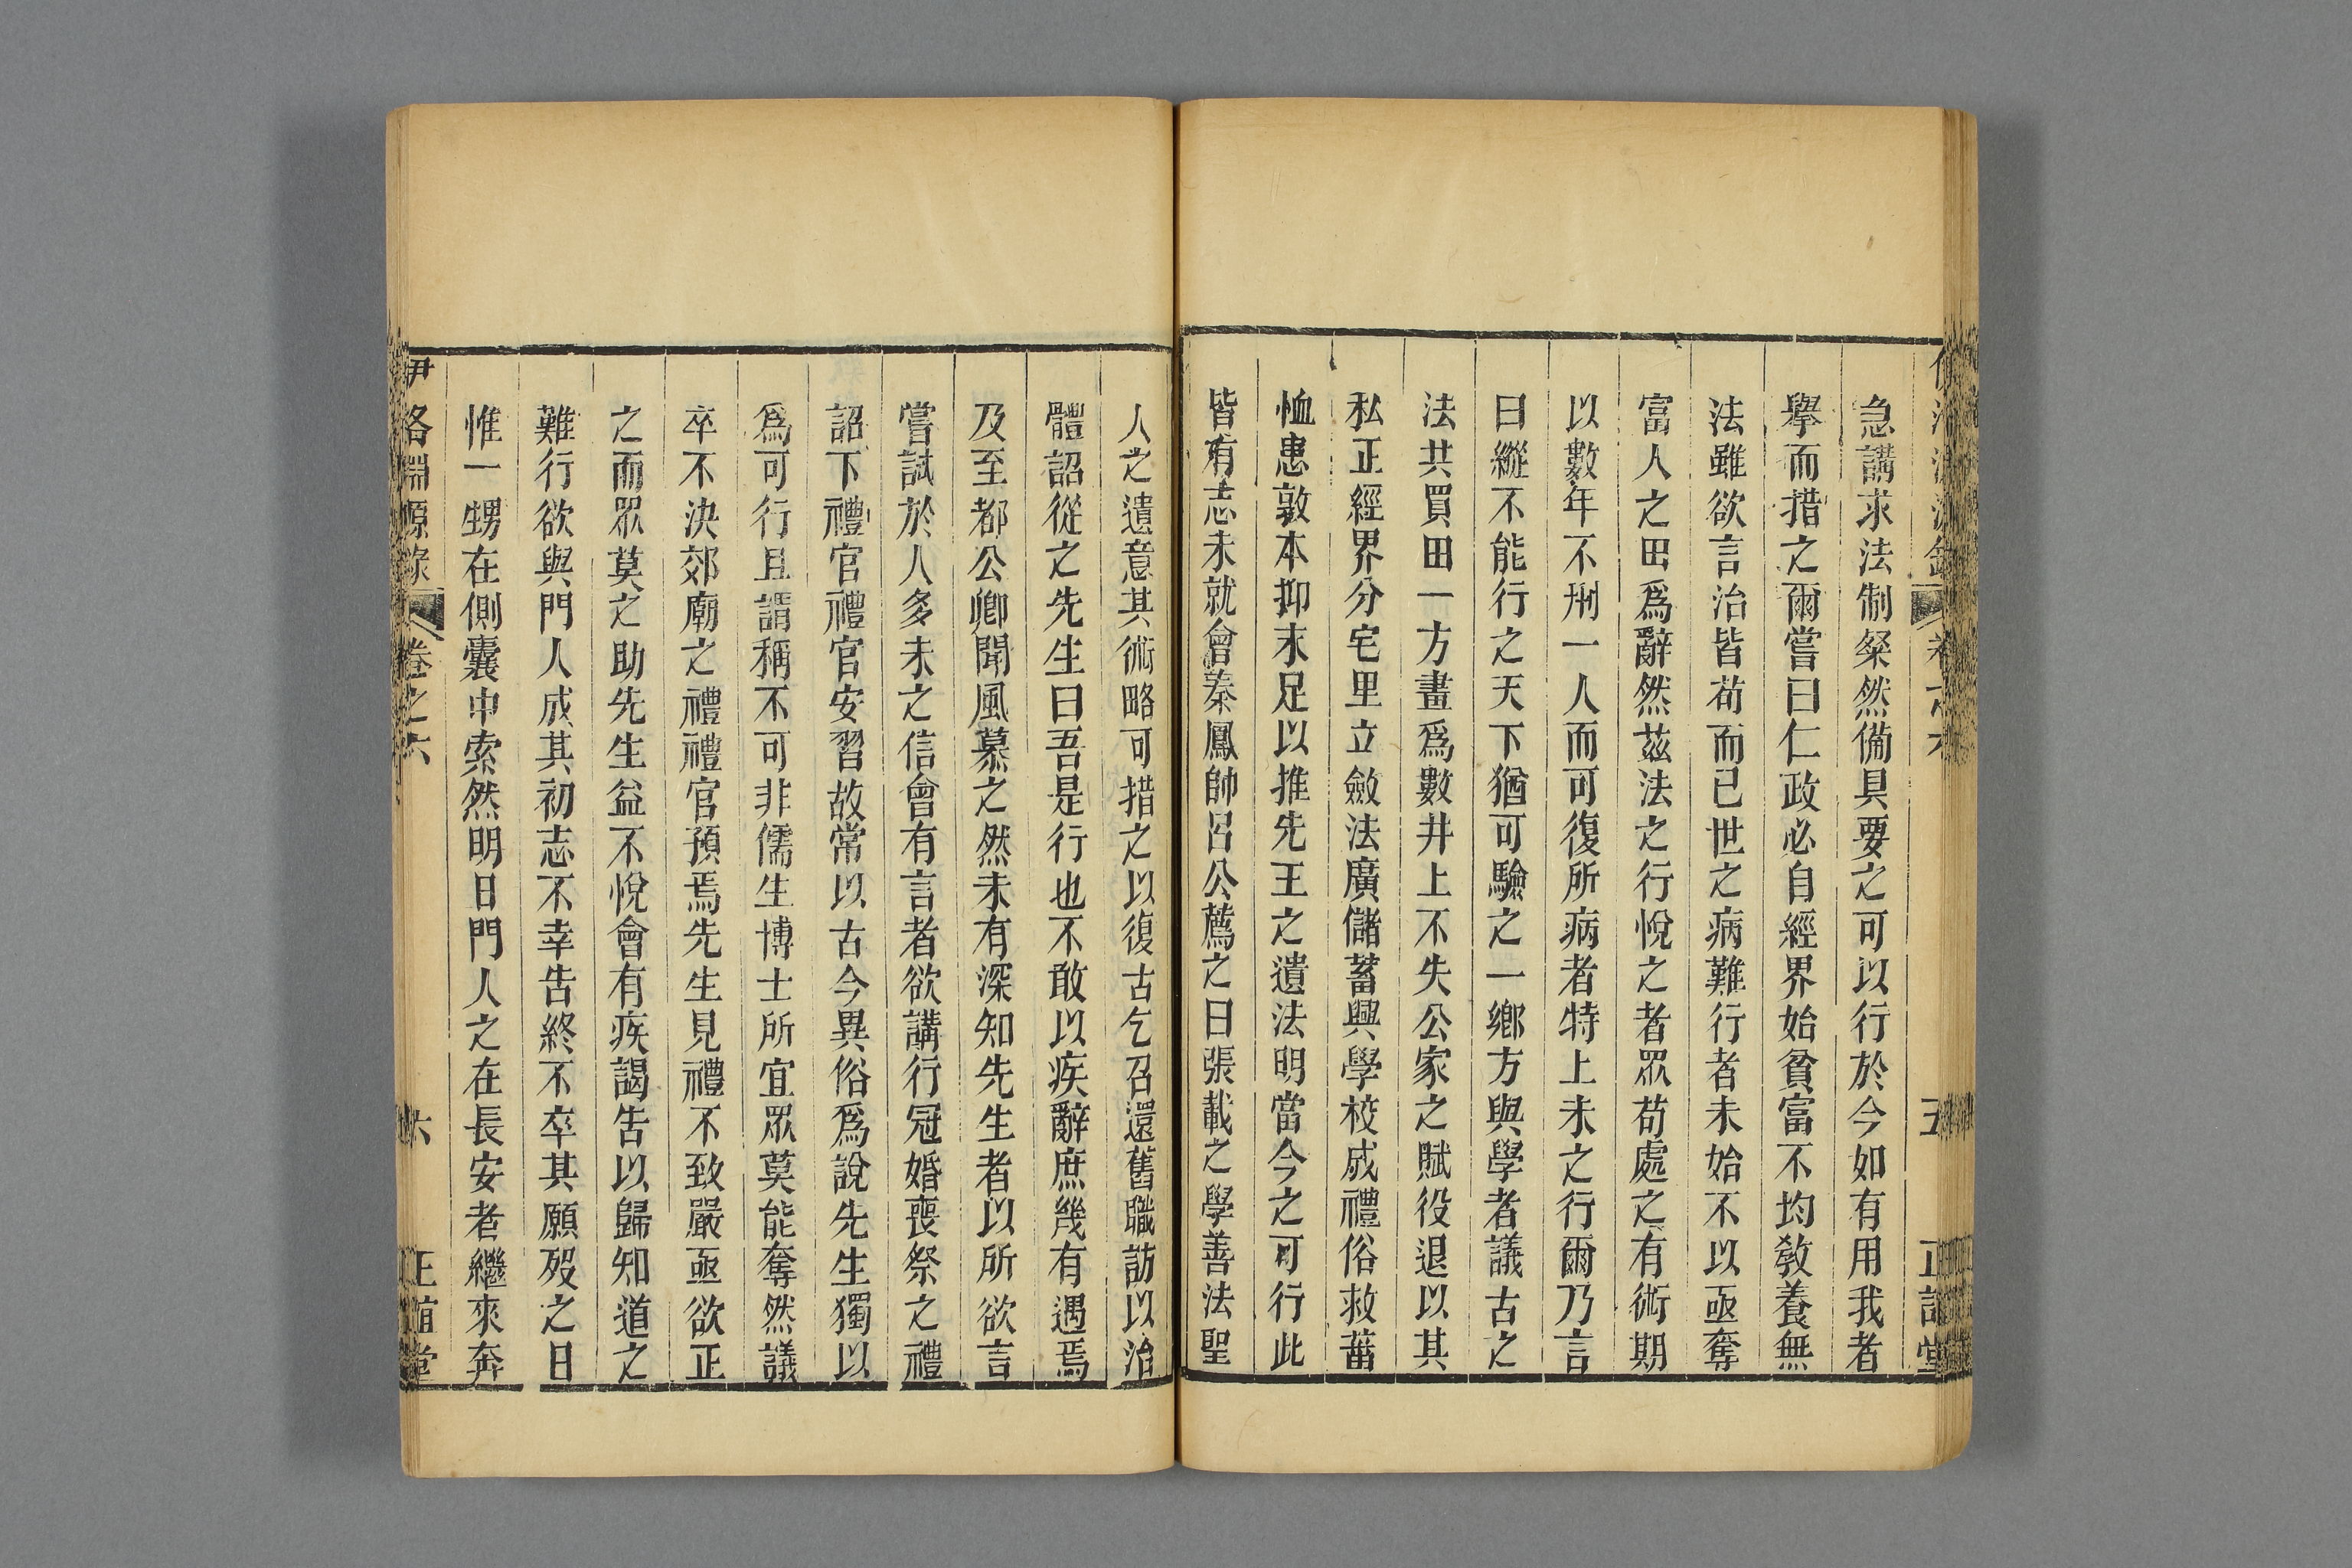 急講求法制粲然備具要之可以行於今如有用我者
舉而措之爾嘗曰仁政必自經界始貧富不均敎養無
法雖欲言治皆苟而已世之病難行者未始不以亟奪
富人之田爲辭然茲法之行悅之者眾苟處之有術期
以數年不刑一人而可復所病者特上未之行爾乃言
曰縱不能行之天下猶可驗之一鄉方與學者議古之
法共買田一方畫爲數井上不失公家之賦役退以其
私正經界分宅里立斂法廣儲蓄興學校成禮俗救菑
恤患敦本抑末足以推先王之遺法明當今之可行此
皆有志未就會秦鳳帥呂公薦之曰張載之學善法聖
人之遺意其術略可措之以復古乞召還舊職訪以治
體詔從之先生曰吾是行也不敢以疾辭庶幾有遇焉
及至都公卿聞風慕之然未有深知先生者以所欲言
嘗試於人多未之信會有言者欲講行冠婚喪祭之禮
詔下禮官禮官安習故常以古今異俗爲說先生獨以
爲可行且謂稱不可非儒生博士所宜眾莫能奪然議
卒不決郊廟之禮禮官預焉先生見禮不致嚴亟欲正
之而眾莫之助先生益不悅會有疾謁告以歸知道之
難行欲與門人成其初志不幸告終不卒其願歿之日
惟一甥在側囊中索然明日門人之在長安者繼來奔
伊洛淵源錄 卷之六 六 正誼堂